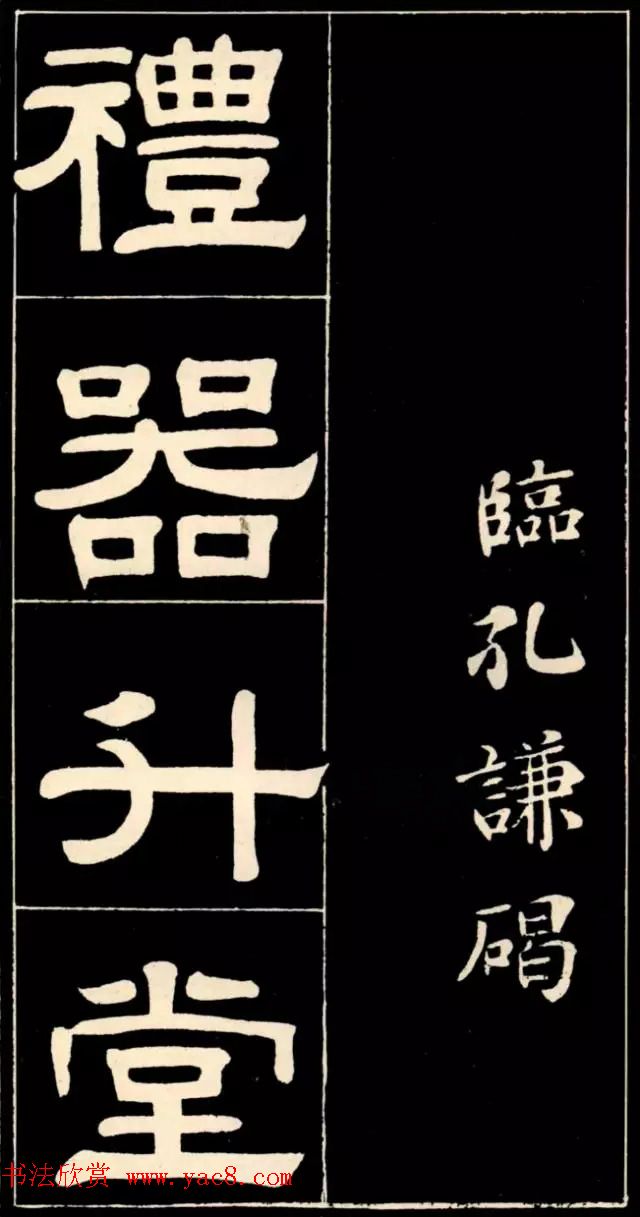 臨孔謙碣
禮器升堂
书法欣赏 www.yac8.com